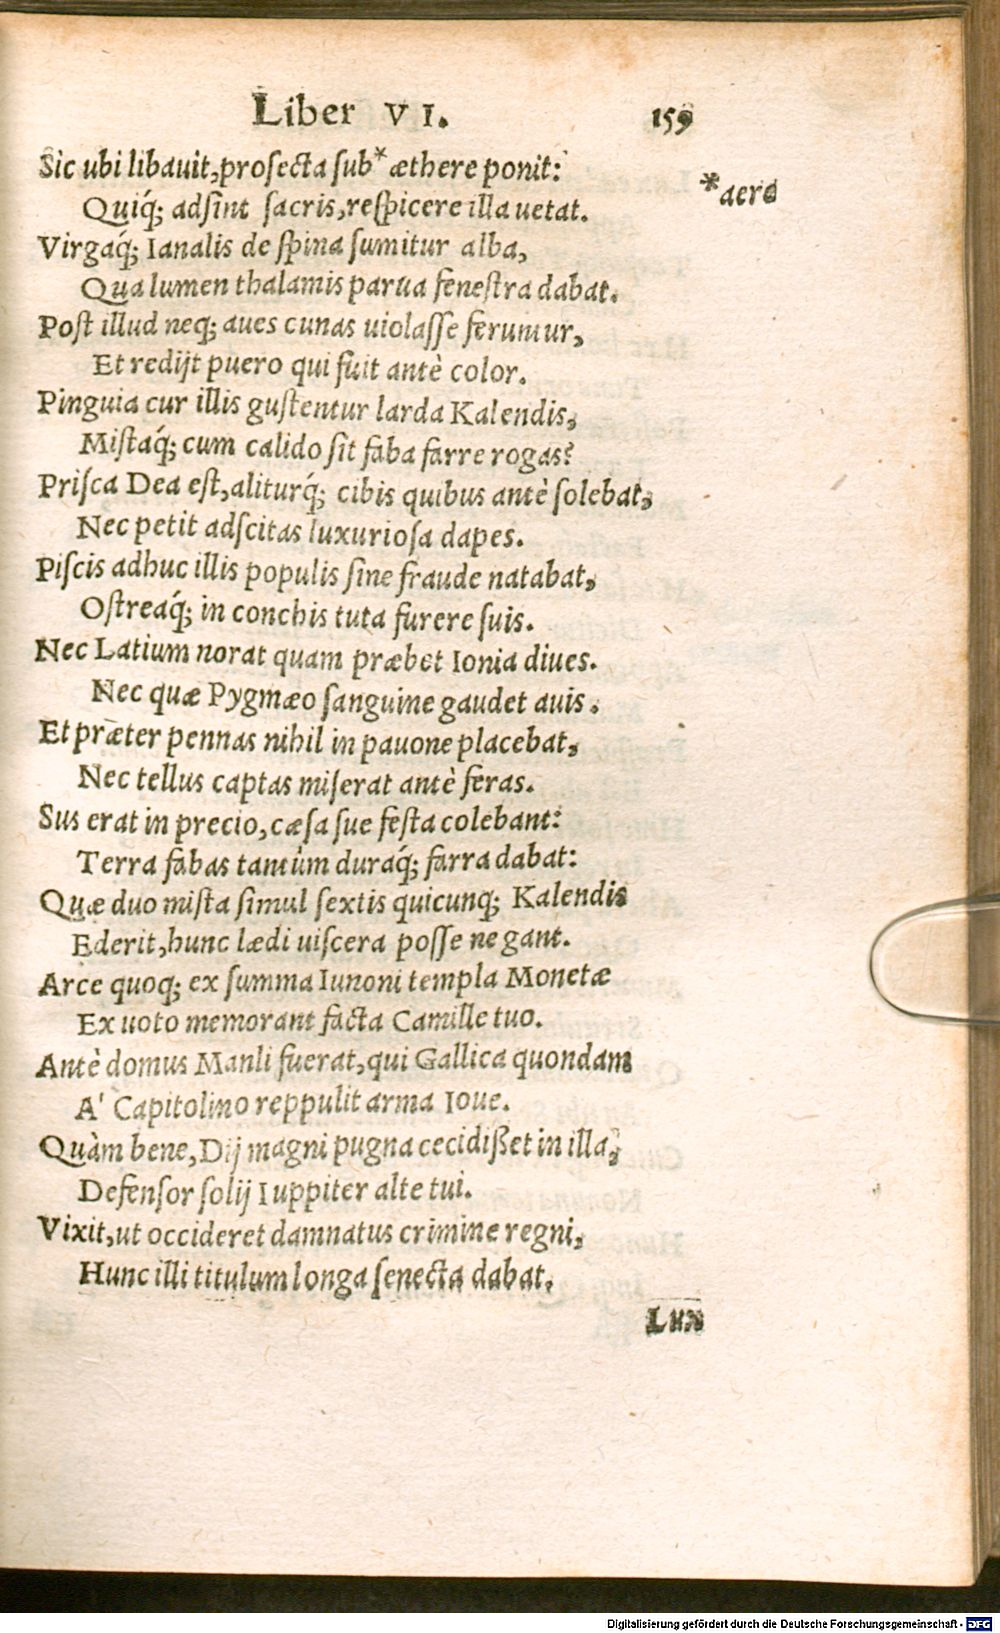 Liber VI. 159
Sic ubi libauit,prosecta sub* æthere ponit:
*aere
Quiq́; adsint sacris,respicere illa uetat.
Virgaq́; Ianalis de spina sumitur alba,
Qua lumen thalamis parua fenestra dabat.
Post illud neq; aues cunas uiolasse feruntur,
Et redijt puero qui fuit antè color.
Pinguia cur illis gustentur larda Kalendis,
Mistaq́; cum calido sit faba farre rogas?
Prisca Dea est,aliturq́; cibis quibus antè solebat,
Nec petit adscitas luxuriosa dapes.
Piscis adhuc illis populis sine fraude natabat,
Ostreaq́; in conchis tuta furere suis.
Nec Latium norat quam præbet Ionia diues.
Nec quæ Pygmæo sanguine gaudet auis.
Et præter pennas nihil in pauone placebat,
Nec tellus captas miserat antè feras.
Sus erat in precio,cæsa sue festa colebant:
Terra fabas tantùm duraq́; farra dabat:
Quæ duo mista simul sextis quicunq; Kalendis
Ederit,hunc lædi uiscera posse negant.
Arce quoq; ex summa Iunoni templa Monetæ
Ex uoto memorant facta Camille tuo.
Antè domus Manli fuerat,qui Gallica quondam
A' Capitolino reppulit arma Ioue.
Quàm bene,Dij magni pugna cecidißet in illa,
Defensor solij Iuppiter alte tui.
Vixit,ut occideret damnatus crimine regni,
Hunc illi titulum longa senecta dabat.
Lux
Digitalisierung gefördert durch die Deutsche Forschungsgemeinschaft - DFG